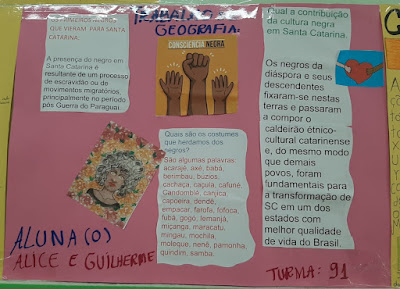 TRABALHO
GEOGRAFIA
QUE VIERAM PARA SANTA
CATARINA.
A presença do negro em
Santa Catarina é
resultante de um processo
de escravidão ou de
movimentos migratórios,
principalmente no período
pós Guerra do Paraguai.
CONSCIÊNCIA NEGRA
Quais são os costumes
que herdamos dos
negros?
São algumas palavras:
acarajé, axé, babá,
berimbau, búzios,
cachaça, caçula, cafuné,
Candomblé, canjica,
capoeira, dendê,
empacar, farofa, fofoca,
fubá, gogo, Iemanjá,
miçanga, maracatu,
mingau, mochila,
moleque, nenê, pamonha,
quindim, samba.
Qual a contribuição
da cultura negra
em Santa Catarina.
Os negros da
diáspora e seus
descendentes
fixaram-se nestas
terras e passaram
a compor o
caldeirão étnico-
cultural catarinense
e, do mesmo modo
que demais
povos, foram
fundamentais para
a transformação de
SC em um dos
estados com
melhor qualidade
de vida do Brasil.
ALUNA(O)
ALICE E GUILHERME
TURMA: 91